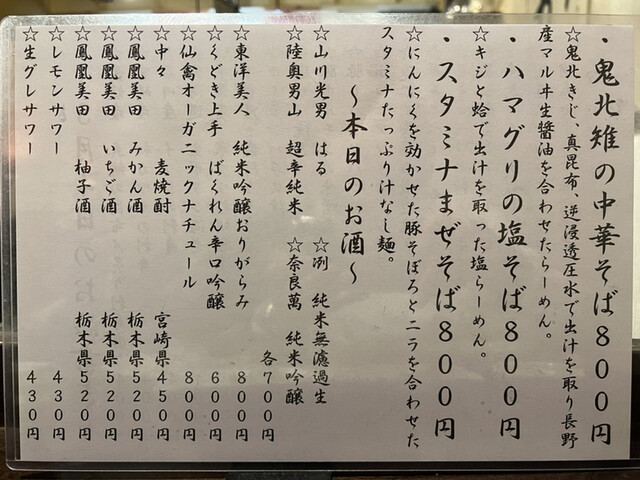 ・鬼北雉の中華そば８００円
☆鬼北きじ、真昆布、逆浸透圧水で出汁を取り長野
産マルヰ生醬油を合わせたらーめん。
・ハマグリの塩そば８００円
☆キジと蛤で出汁を取った塩らーめん。
・スタミナまぜそば８００円
☆にんにくを効かせた豚そぼろとニラを合わせた
スタミナたっぷり汁なし麺。
～本日のお酒～
☆山川光男 はる ☆洌 純米無濾過生
☆陸奥男山 超辛純米 ☆奈良萬 純米吟醸
各７００円
☆東洋美人 純米吟醸おりがらみ ８００円
☆くどき上手 ばくれん辛口吟醸 ６００円
☆仙禽オーガニックナチュール ８００円
☆中々 麦焼酎 宮崎県４５０円
☆鳳凰美田 みかん酒 栃木県５２０円
☆鳳凰美田 いちご酒 栃木県５２０円
☆鳳凰美田 柚子酒 栃木県５２０円
☆レモンサワー ４３０円
☆生グレサワー ４３０円